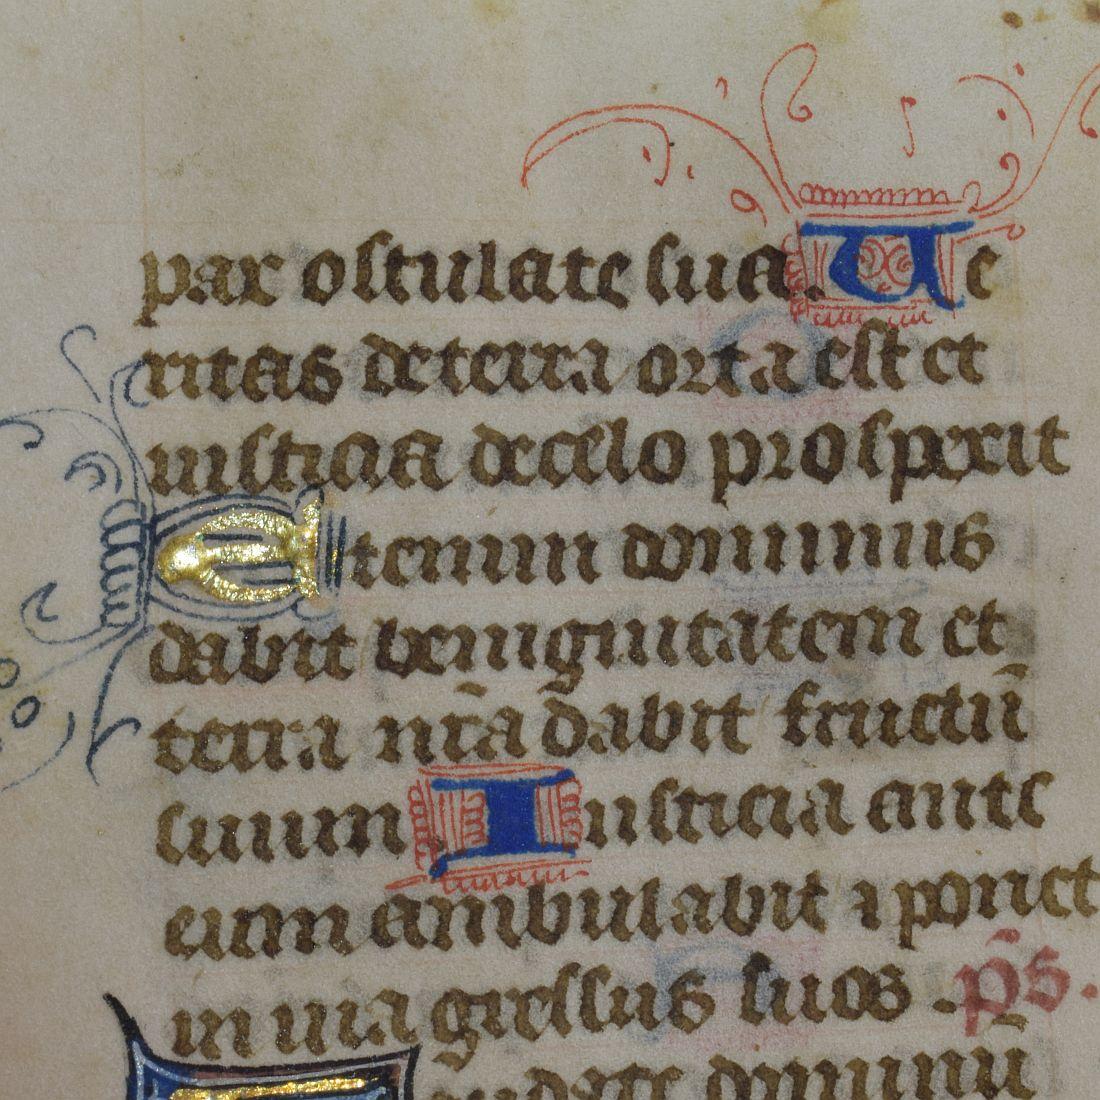 pax osculate sua. Ue
ritas de terra orta est et
iusticia de celo prosperit
Etenim dominus
dabit benignitatem et
terra nr̄a dabit fructū
suum. Iusticia ante
eum ambulabit ⁊ ponet
in uia gressus suos. p̄s.
audate dominū